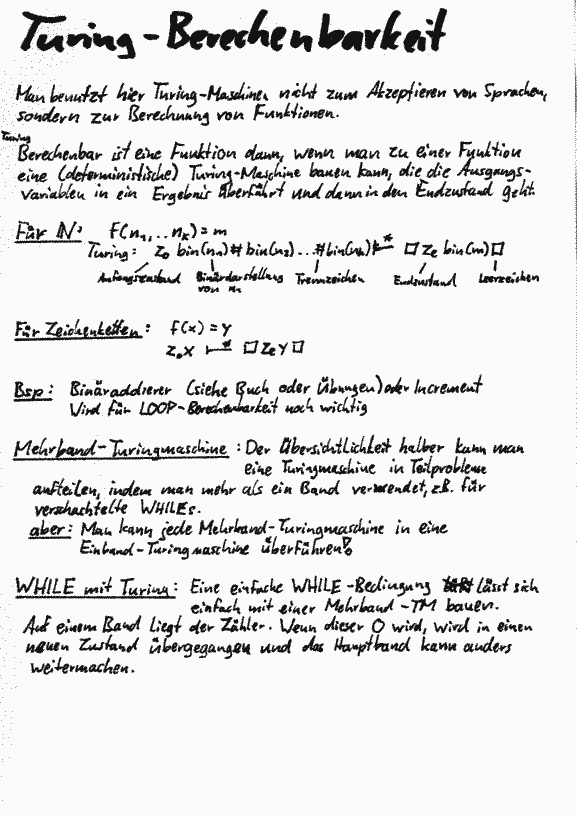 Turing-Berechenbarkeit
Man benutzt hier Turing-Maschinen nicht zum Akzeptieren von Sprachen,
sondern zur Berechnung von Funktionen.
Turing
Berechenbar ist eine Funktion dann, wenn man zu einer Funktion
eine (deterministische) Turing-Maschine bauen kann, die die Ausgangs-
variablen in ein Ergebnis überführt und dann in den Endzustand geht.
Für ℕ: f(n₁,..nₖ)=m
Turing: z₀ bin(n₁)#bin(n₂)...#bin(nₖ) ⊢* □ zₑ bin(m)□
Anfangszustand Binärdarstellung Trennzeichen Endzustand Leerzeichen
von n₁
Für Zeichenketten: f(x)=y
z₀x ⊢* □zₑy□
Bsp: Binäraddierer (siehe Buch oder Übungen) oder Increment
Wird für LOOP-Berechenbarkeit noch wichtig
Mehrband-Turingmaschine: Der Übersichtlichkeit halber kann man
eine Turingmaschine in Teilprobleme
aufteilen, indem man mehr als ein Band verwendet, z.B. für
verschachtelte WHILEs.
aber: Man kann jede Mehrband-Turingmaschine in eine
Einband-Turingmaschine überführen!
WHILE mit Turing: Eine einfache WHILE-Bedingung lässt sich
einfach mit einer Mehrband-TM bauen.
Auf einem Band liegt der Zähler. Wenn dieser 0 wird, wird in einen
neuen Zustand übergegangen und das Hauptband kann anders
weitermachen.